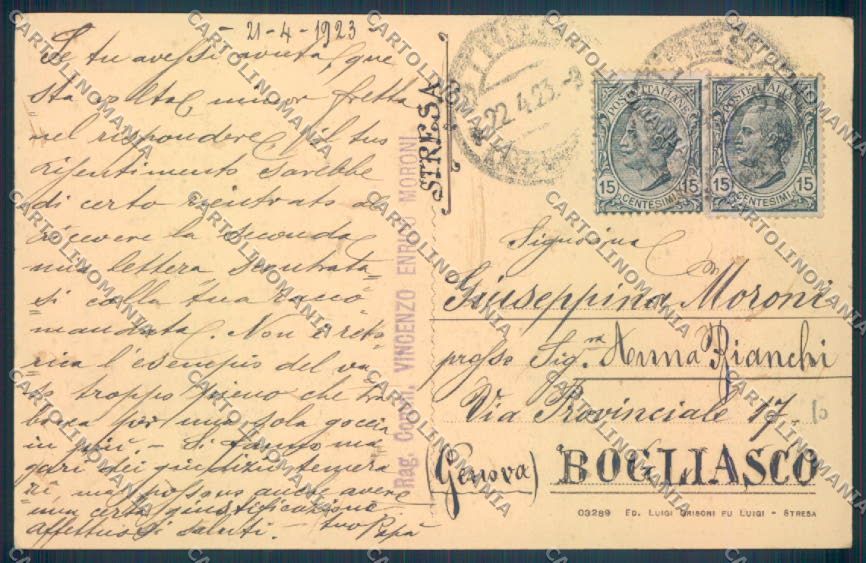 21-4-1923
Se tu avessi avuta, que
sta volta minor fretta
nel rispondere, il tuo
risentimento sarebbe
di certo rientrato al
ricevere la seconda
mia lettera scontrata=
si colla tua racco=
mandata. Non è reto=
rica l'esempio del va=
so troppo pieno che tra=
bocca per una sola goccia
in più. - Si fanno ma
gari dei giudizi temera
ri ma possono anche avere
una certa giustificazione.
affettuosi saluti. - tuo Papà
Rag. Comm. VINCENZO ENRICO MORONI
STRESA
22.4.23.
POSTE ITALIANE
15 CENTESIMI 15
POSTE ITALIANE
15 CENTESIMI 15
Signorina
Giuseppina Moroni
presso Sig.ra Anna Bianchi
Via Provinciale 17.
(Genova) BOGLIASCO
03289 ED. LUIGI GRISONI FU LUIGI - STRESA
CARTOLINOMANIA